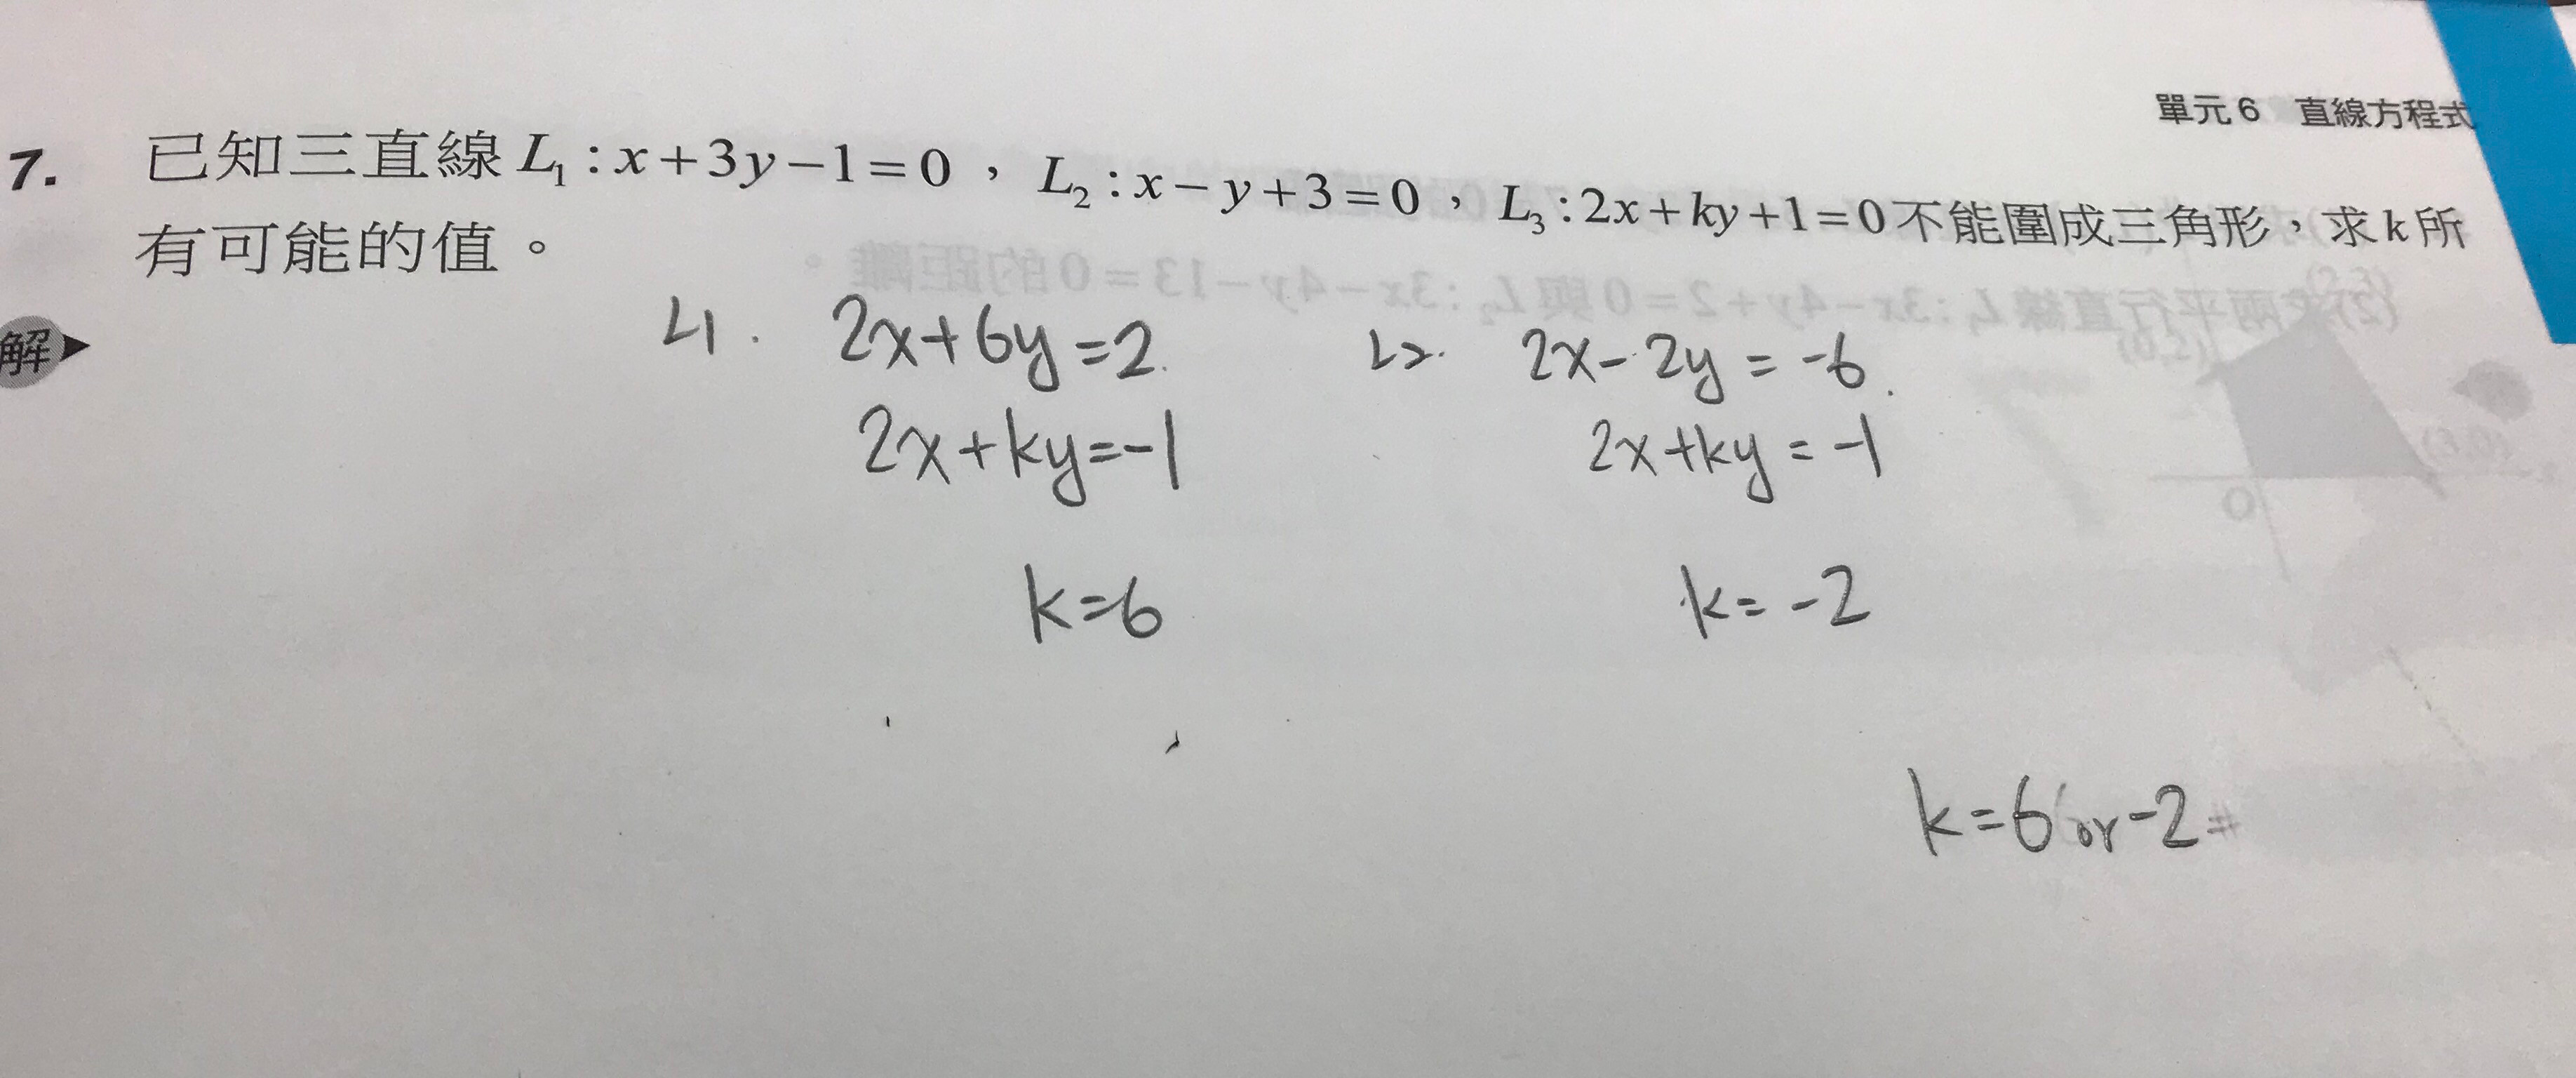 單元6 直線方程式
7. 已知三直線 L₁:x+3y−1=0,L₂:x−y+3=0,L₃:2x+ky+1=0不能圍成三角形,求k所
有可能的值。
解
L1. 2x+6y=2. L2. 2x-2y=-6.
2x+ky=-1 2x+ky=-1
k=6 k=-2
k=6 or -2 #